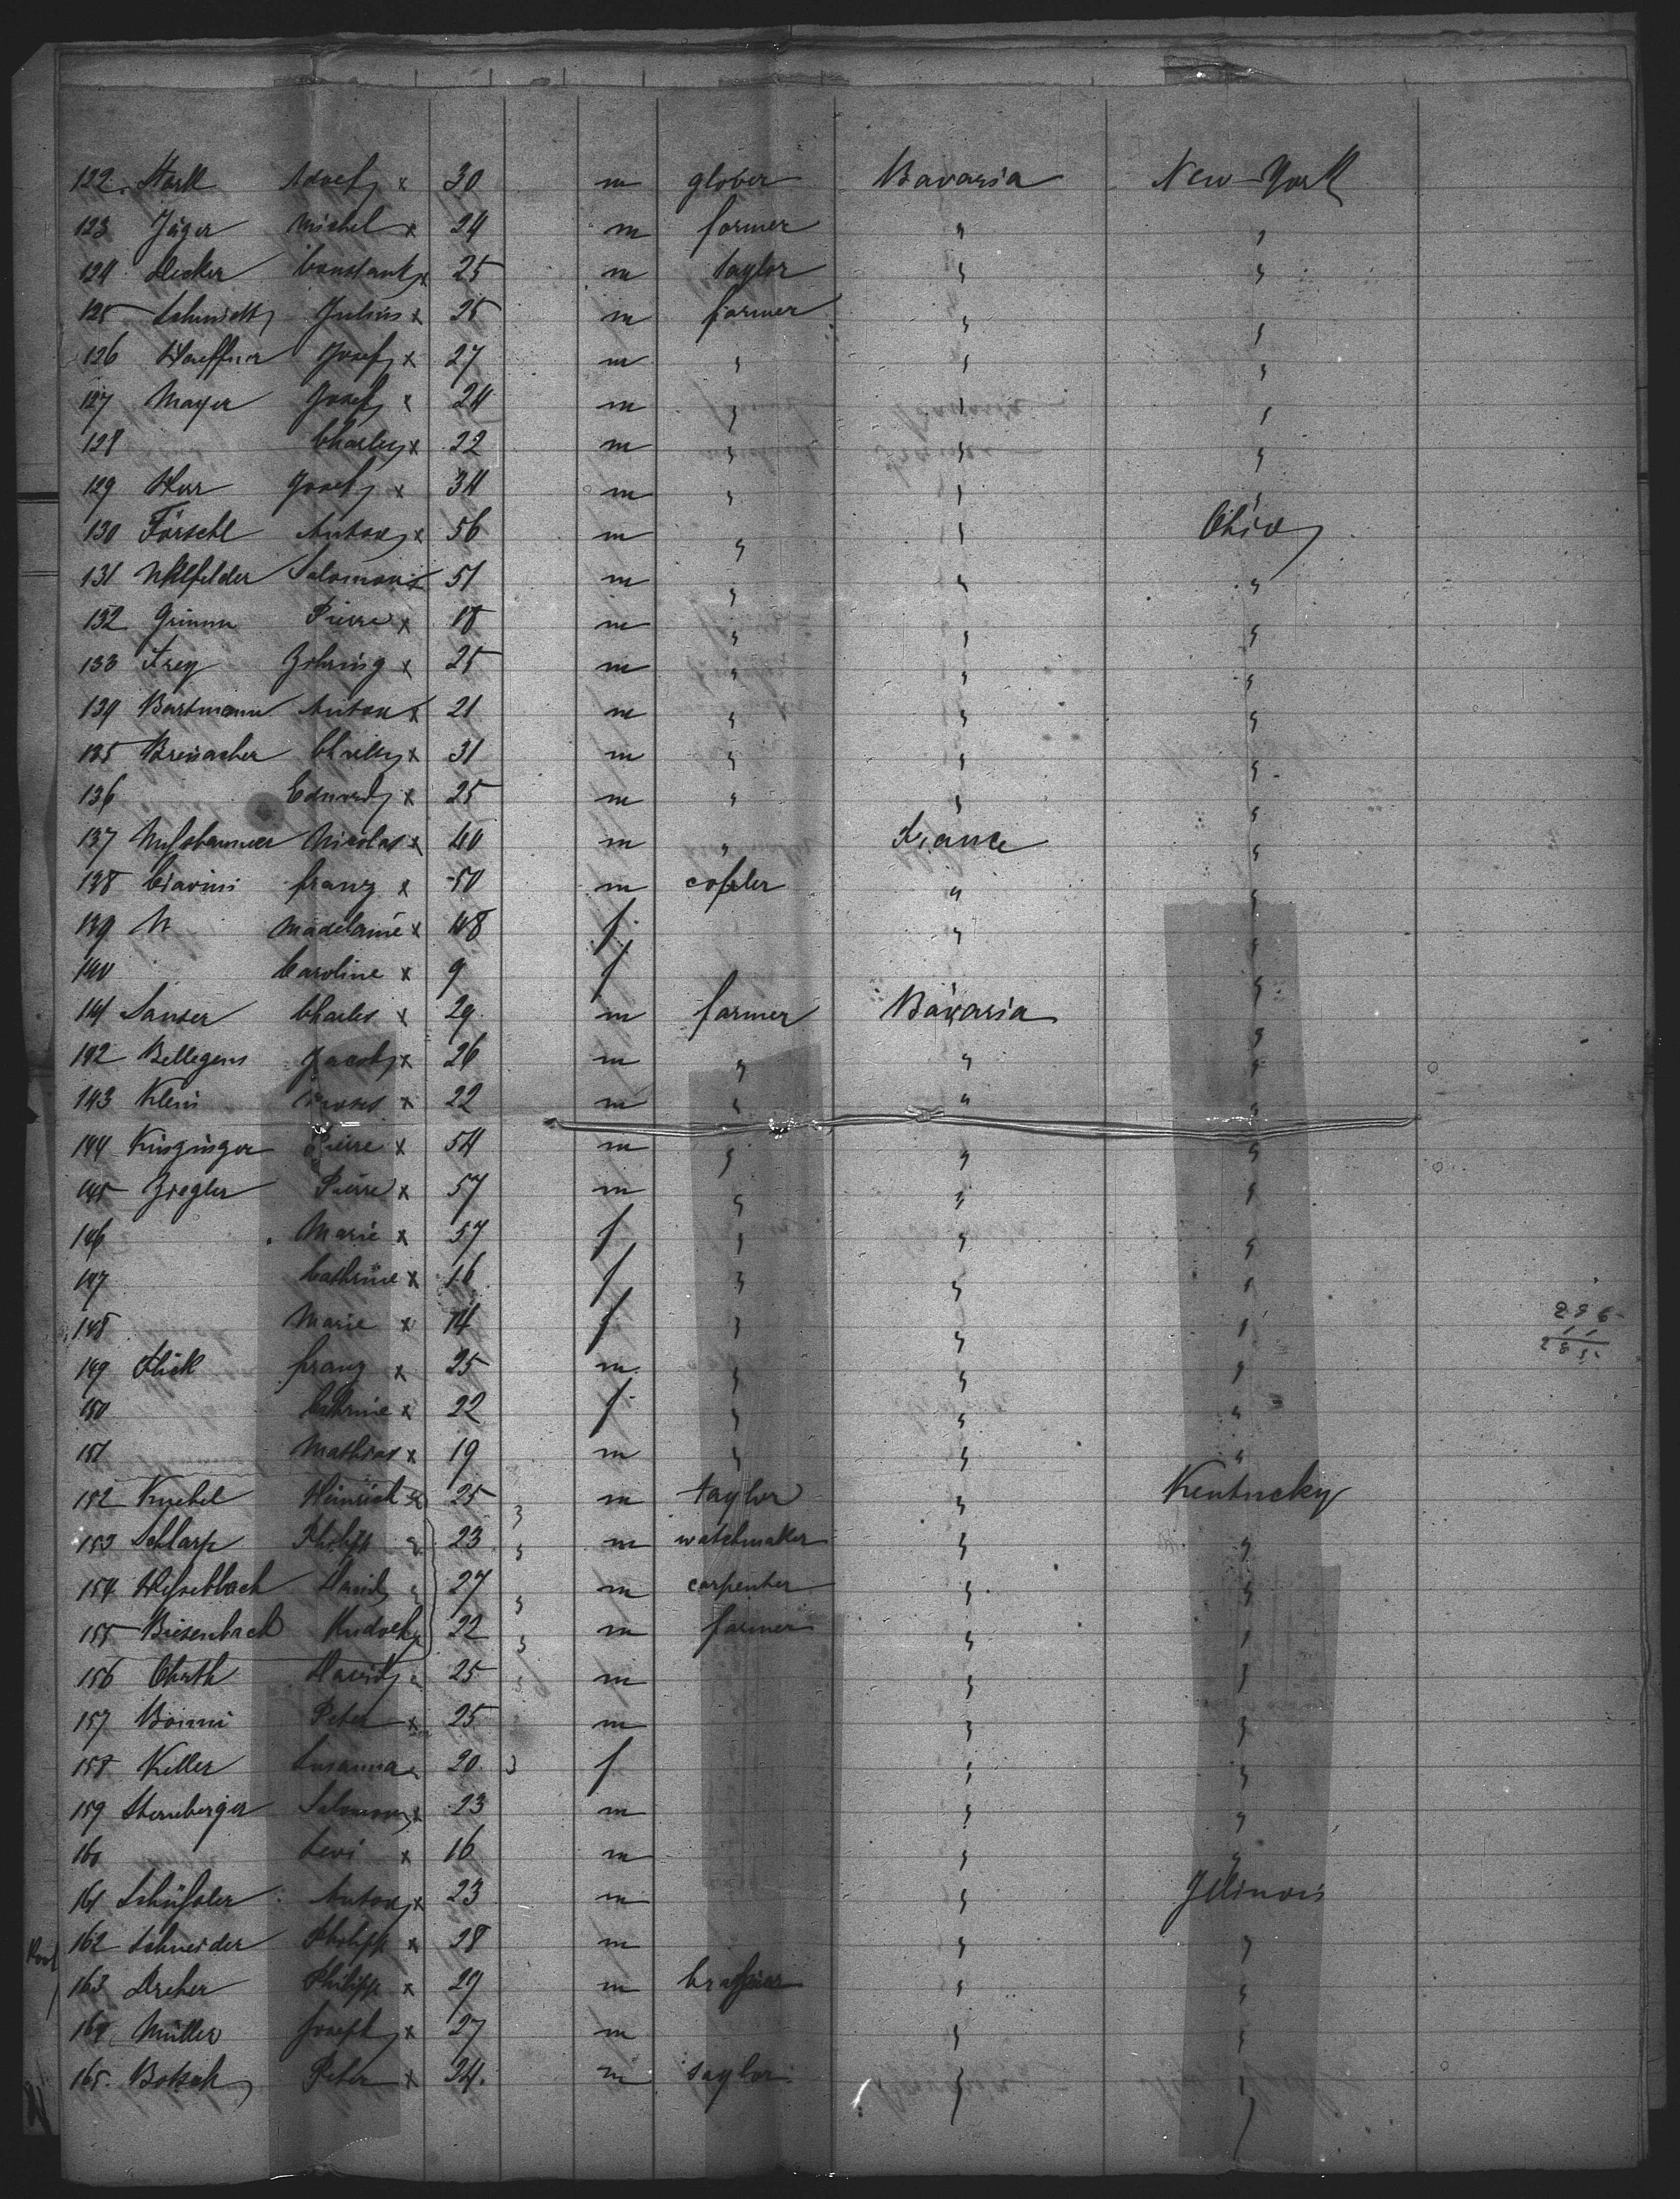 122 Stark Adolf x 30 m glober Bavaria New-York
123 Jäger Michel x 24 m farmer " "
124 Decker Constant x 25 m taylor " "
125 Schmidt Julius x 25 m farmer " "
126 Haeffner Josef x 27 m " " "
127 Mayer Josef x 24 m " " "
128 Charles x 22 m " " "
129 Herr Josef x 34 m " " "
130 Förschl Anton x 56 m " " Ohio
131 Uhlfelder Salomon x 51 m " " "
132 Grimm Pierre x 18 m " " "
133 Frey x 25 m " " "
134 Bartmann Anton x 21 m " " "
135 Breisacher Charles x 31 m " " "
136 Eduard x 25 m " " "
137 Nicolas x 40 m " France "
138 Ciavini franz x 50 m " "
139 Madelaine x 48 f " "
140 Caroline x 9 f "
141 Sanser Charles x 29 m farmer Bavaria "
142 Bellegens Jacob x 26 m " " "
143 Klein Moses x 22 m " " "
144 Kinzinger Pierre x 54 m " " "
145 Ziegler Pierre x 57 m " " "
146 Marie x 57 f " " "
147 Cathrine x 16 f " " "
148 Marie x 14 f " " "
149 Flick franz x 25 m " " "
150 Cathrine x 22 f " " "
151 Mathias x 19 m " " "
152 Knebel Heinrich 25 m taylor " Kentucky
153 Schlarp Philipp 23 m watchmaker " "
154 David 27 m carpenter " "
155 Biesenbach Rudolf 22 m farmer " "
156 David 25 m " "
157 Peter x 25 m " "
158 Keller Susanna 20 f " "
159 Sternberger Salomon x 23 m " "
160 Levi x 16 m " "
161 Schüssler Anton x 23 m " Illinois
162 Schneider Philipp x 28 m " "
163 Dreher Philipp x 29 m " "
164 Müller Joseph x 27 m " "
165. Peter x 24. m taylor " "